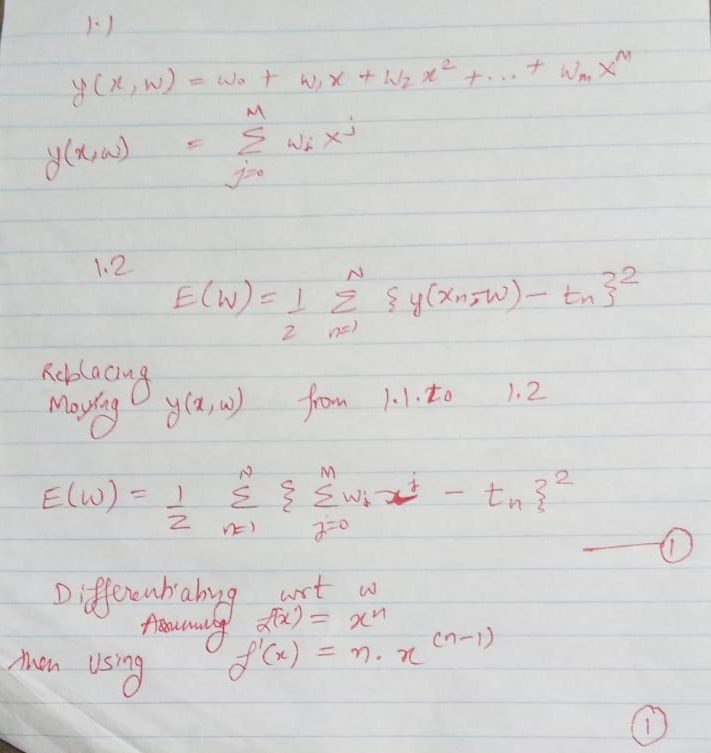 1.1
y(x,w) = w₀ + w₁x + w₂x² + ... + wₘx^M
y(x,w) = ∑_{j=0}^{M} wⱼ x^j
1.2
E(W) = 1/2 ∑_{n=1}^{N} { y(xₙ, w) - tₙ }²
Replacing
Moving y(x,w) from 1.1. to 1.2
E(W) = 1/2 ∑_{n=1}^{N} { ∑_{j=0}^{M} wⱼ x^j - tₙ }²
①
Differentiabyg wrt w
Assuming f(x) = xⁿ
then using f'(x) = n. x^(n-1)
①